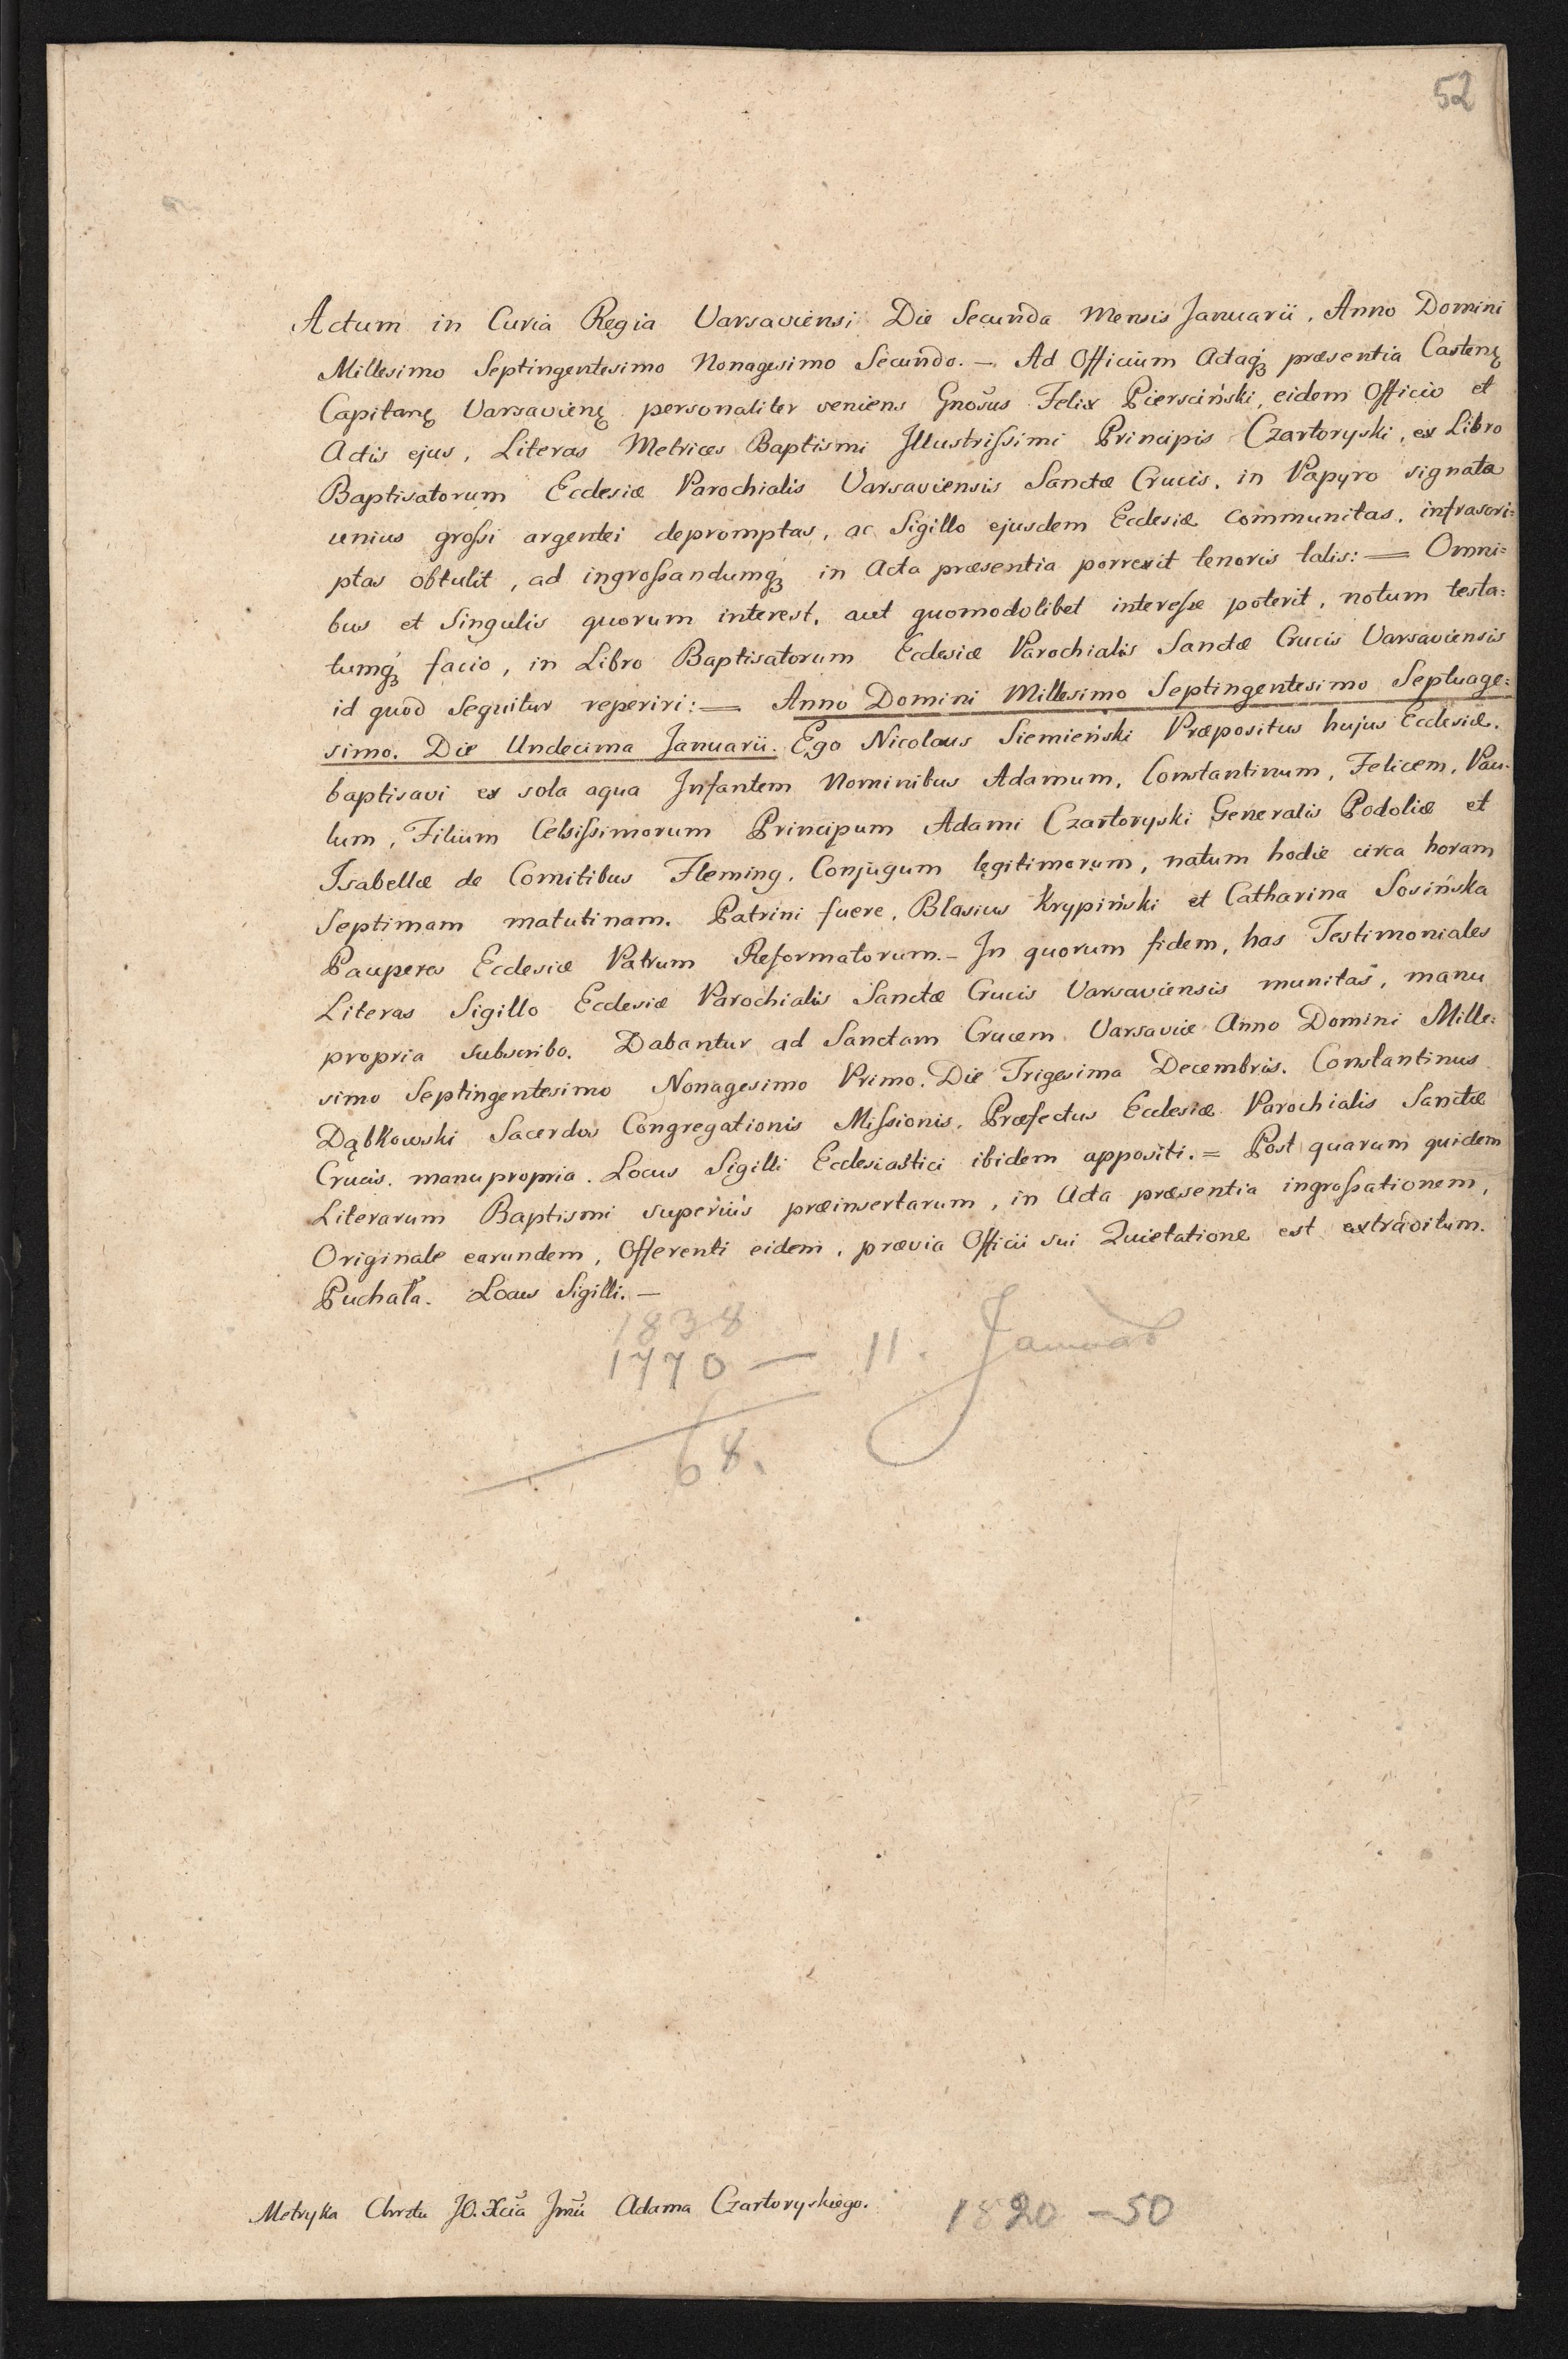 52
Actum in Curia Regia Varsaviensi Die Secunda Mensis Januarii, Anno Domini
Millesimo Septingentesimo Nonagesimo Secundo. — Ad Officium Actaqꝫ præsentia Castenę
Capitanę Varsavienę personaliter veniens Gnosus Felix Piersciński, eidem Officio et
Actis ejus, Literas Metrices Baptismi Illustrissimi Principis Czartoryski, ex Libro
Baptisatorum Ecclesiæ Parochialis Varsaviensis Sanctæ Crucis, in Papyro signata
unius grossi argentei depromptas, ac Sigillo ejusdem Ecclesiæ communitas, infrascri=
ptas obtulit, ad ingrossandumqꝫ in Acta præsentia porrexit tenoris talis: — Omni=
bus et Singulis quorum interest, aut quomodolibet interesse poterit, notum testa=
tumqꝫ facio, in Libro Baptisatorum Ecclesiæ Parochialis Sanctæ Crucis Varsaviensis
id quod Sequitur reperiri: — Anno Domini Millesimo Septingentesimo Septuage=
simo. Die Undecima Januarii. Ego Nicolaus Siemieński Præpositus hujus Ecclesiæ,
baptisavi ex sola aqua Infantem Nominibus Adamum, Constantinum, Felicem, Pau=
lum, Filium Celsissimorum Principum Adami Czartoryski Generalis Podoliæ et
Isabellæ de Comitibus Fleming, Conjugum legitimorum, natum hodie circa horam
Septimam matutinam. Patrini fuere, Blasius Krypiński et Catharina Sosińska
Pauperes Ecclesiæ Patrum Reformatorum. — In quorum fidem, has Testimoniales
Literas Sigillo Ecclesiæ Parochialis Sanctæ Crucis Varsaviensis munitas, manu
propria subscribo. Dabantur ad Sanctam Crucem Varsaviæ Anno Domini Mille=
simo Septingentesimo Nonagesimo Primo. Die Trigesima Decembris. Constantinus
Dąbkowski Sacerdos Congregationis Missionis, Præfectus Ecclesiæ Parochialis Sanctæ
Crucis. manu propria. Locus Sigilli Ecclesiastici ibidem appositi. = Post quarum quidem
Literarum Baptismi superiùs præinsertarum, in Acta præsentia ingrossationem,
Originale earundem, Offerenti eidem, prævia Officii sui Quietatione est extraditum.
Puchała. Locus Sigilli. —
1838
1770 — 11. Januar
68.
Metryka Chrztu JO. Xcia Jmci Adama Czartoryskiego.
1820 - 50